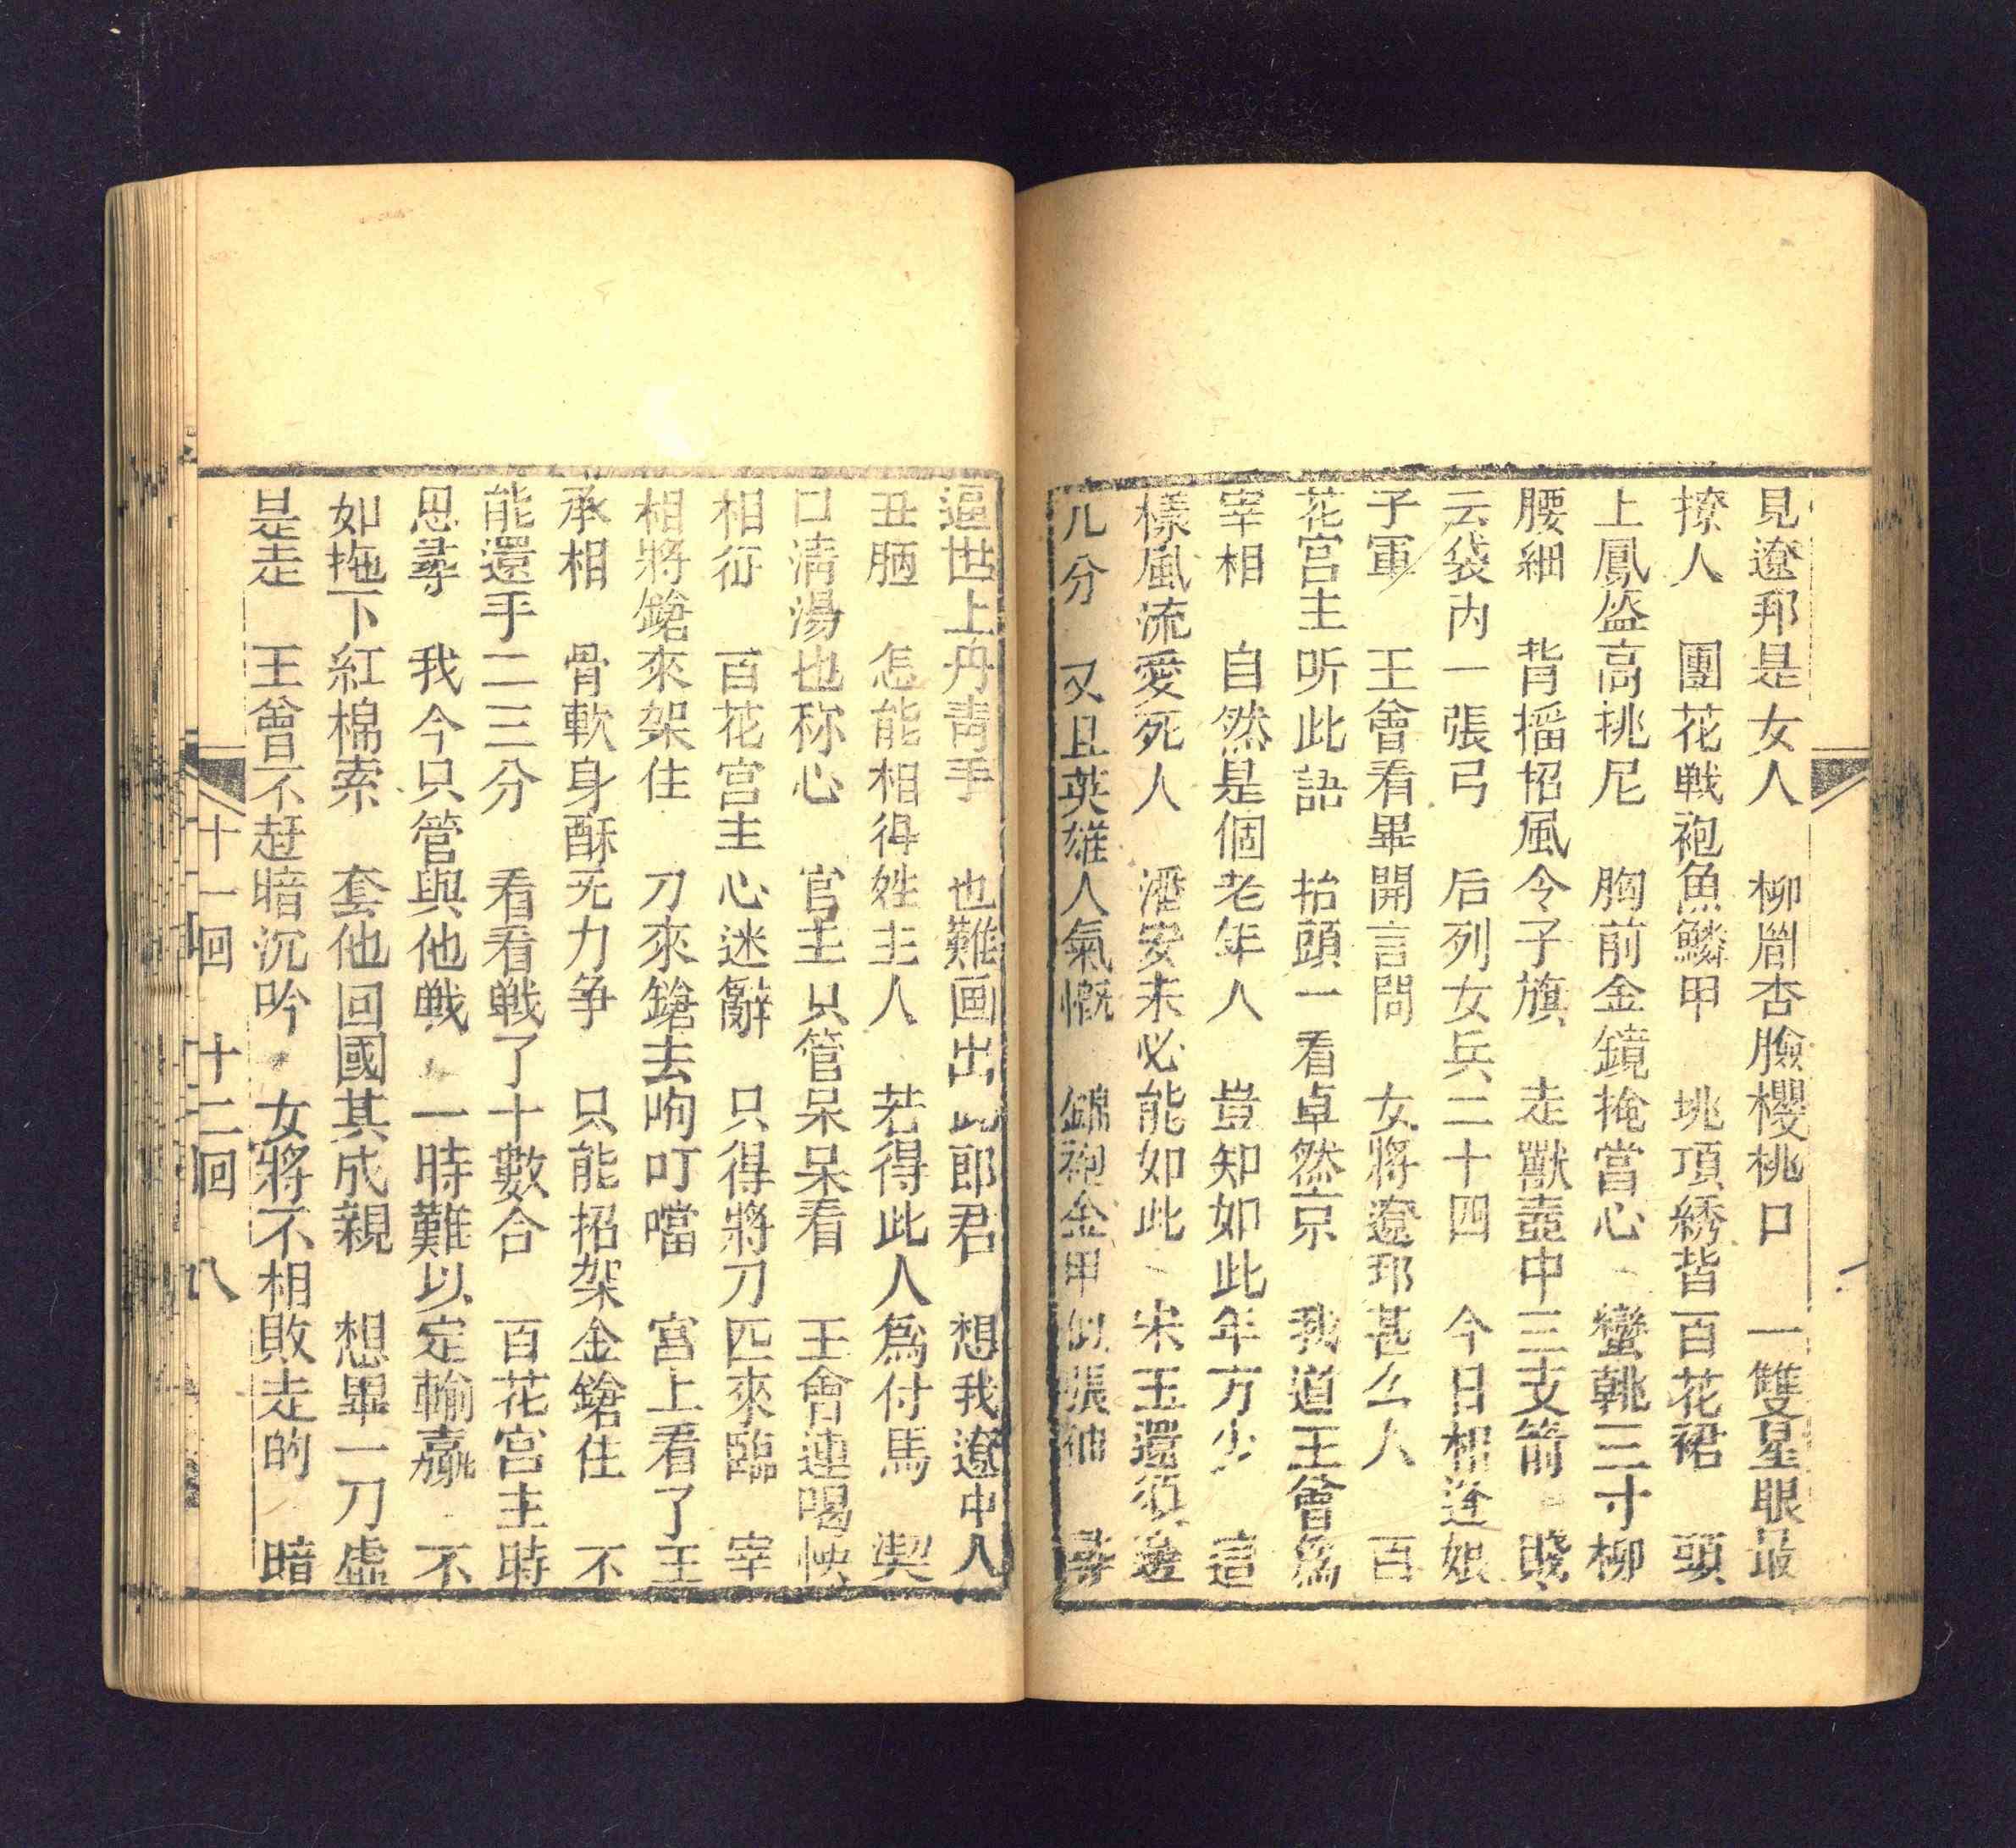 見遼邦是女人　柳眉杏臉櫻桃口　一雙星眼最
撩人　團花戦袍魚鱗甲　挑項綉皆百花裙　頭
上鳳盔高挑尼　胸前金鏡掩當心　蠻靴三寸柳
腰細　背插招風令子旗　走獸壺中三支箭
云袋内一張弓　后列女兵二十四　今日相逢娘
子軍　王曾看畢開言問　女將遼邦甚么人　百
花宫主听此語　抬頭一看卓然京　我道王曾爲
宰相　自然是個老年人　豈知如此年方少　這
樣風流愛死人　潘安未必能如此　宋玉還須遜
几分　又且英雄人氣慨　錦袍金甲似張仙　尋
逼世上丹青手　也難画出此郎君　想我遼中人
丑陋　怎能相得姓主人　若得此人爲付馬　契
口清湯也称心　官主只管呆呆看　王曾連喝怏
相征　百花宫主心迷辭　只得將刀匹來臨　宰
相將鎗來架住　刀來鎗去响叮噹　宮上看了王
承相　骨軟身酥无力争　只能招架金鎗住　不
能還手二三分　看看戦了十數合　百花宫主時
思尋　我今只管與他戦　一時難以定輸嬴　不
如拖下紅棉索　套他回國其成親　想畢一刀虚
是走　王曾不赶暗沉吟　女將不相敗走的　暗
十一回　十二回　八